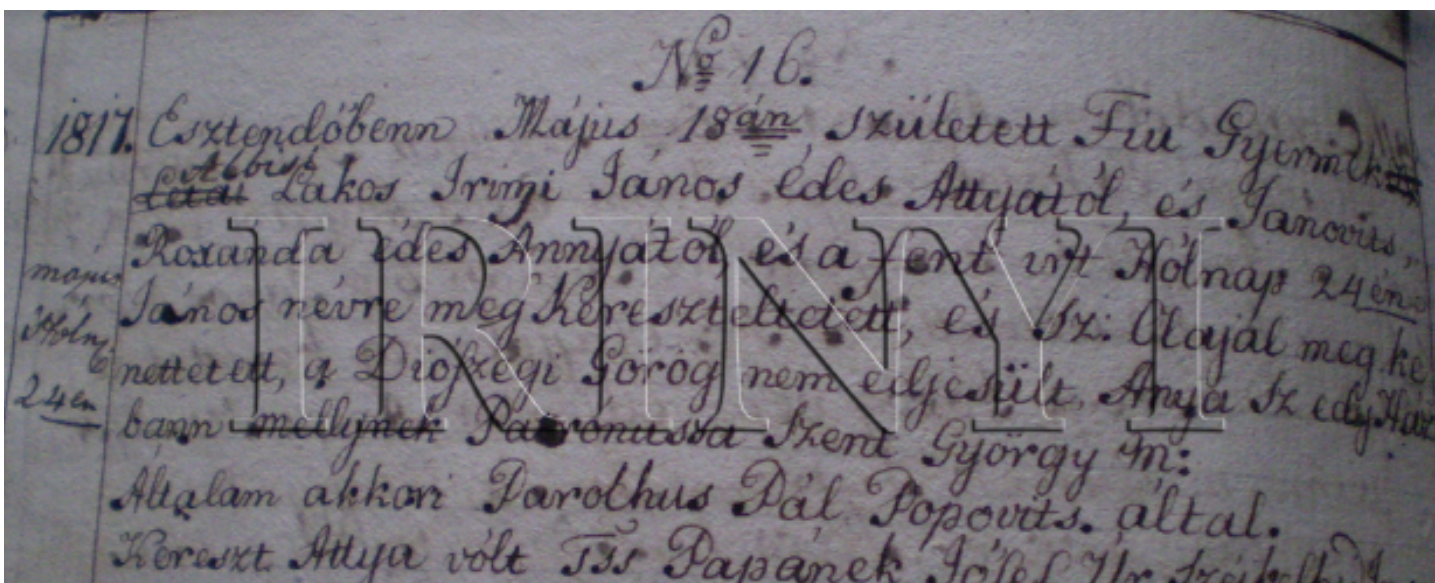 No 16.
1817. Esztendőbenn Május 18án született Fiu Gyermek
Albisi
Létai Lakos Irinyi János édes Attyától, és Janovits,
Roxanda édes Annyától és a fent irt Hólnap 24én
május
János névre meg Kereszteltetett, és Sz: Olajal meg ke
Hóln
nettetett, a Diószegi Görög nem edjesült Anya Sz edyház
24én
bann mellynek Patrónussa Szent György M:
Általam akkori Parochus Pál Popovits. által.
Kereszt Attya vólt Tss Papánek Jósef Úr
IRINYI